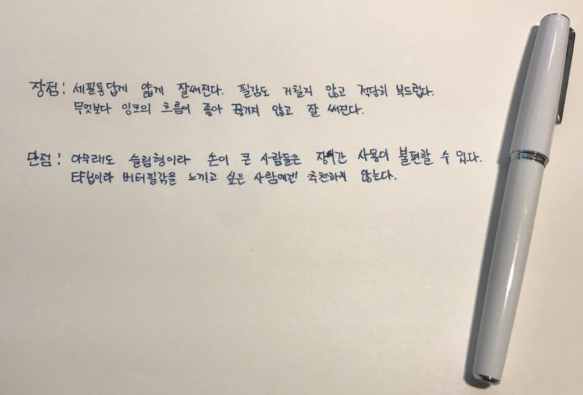 장점: 세필용답게 얇게 잘써진다. 필감도 거칠지 않고 적당히 부드럽다.
무엇보다 잉크의 흐름이 좋아 끊기지 않고 잘 써진다.
단점: 아무래도 슬림형이라 손이 큰 사람들은 장시간 사용이 불편할 수 있다.
EF닙이라 버터필감을 느끼고 싶은 사람에겐 추천하지 않는다.